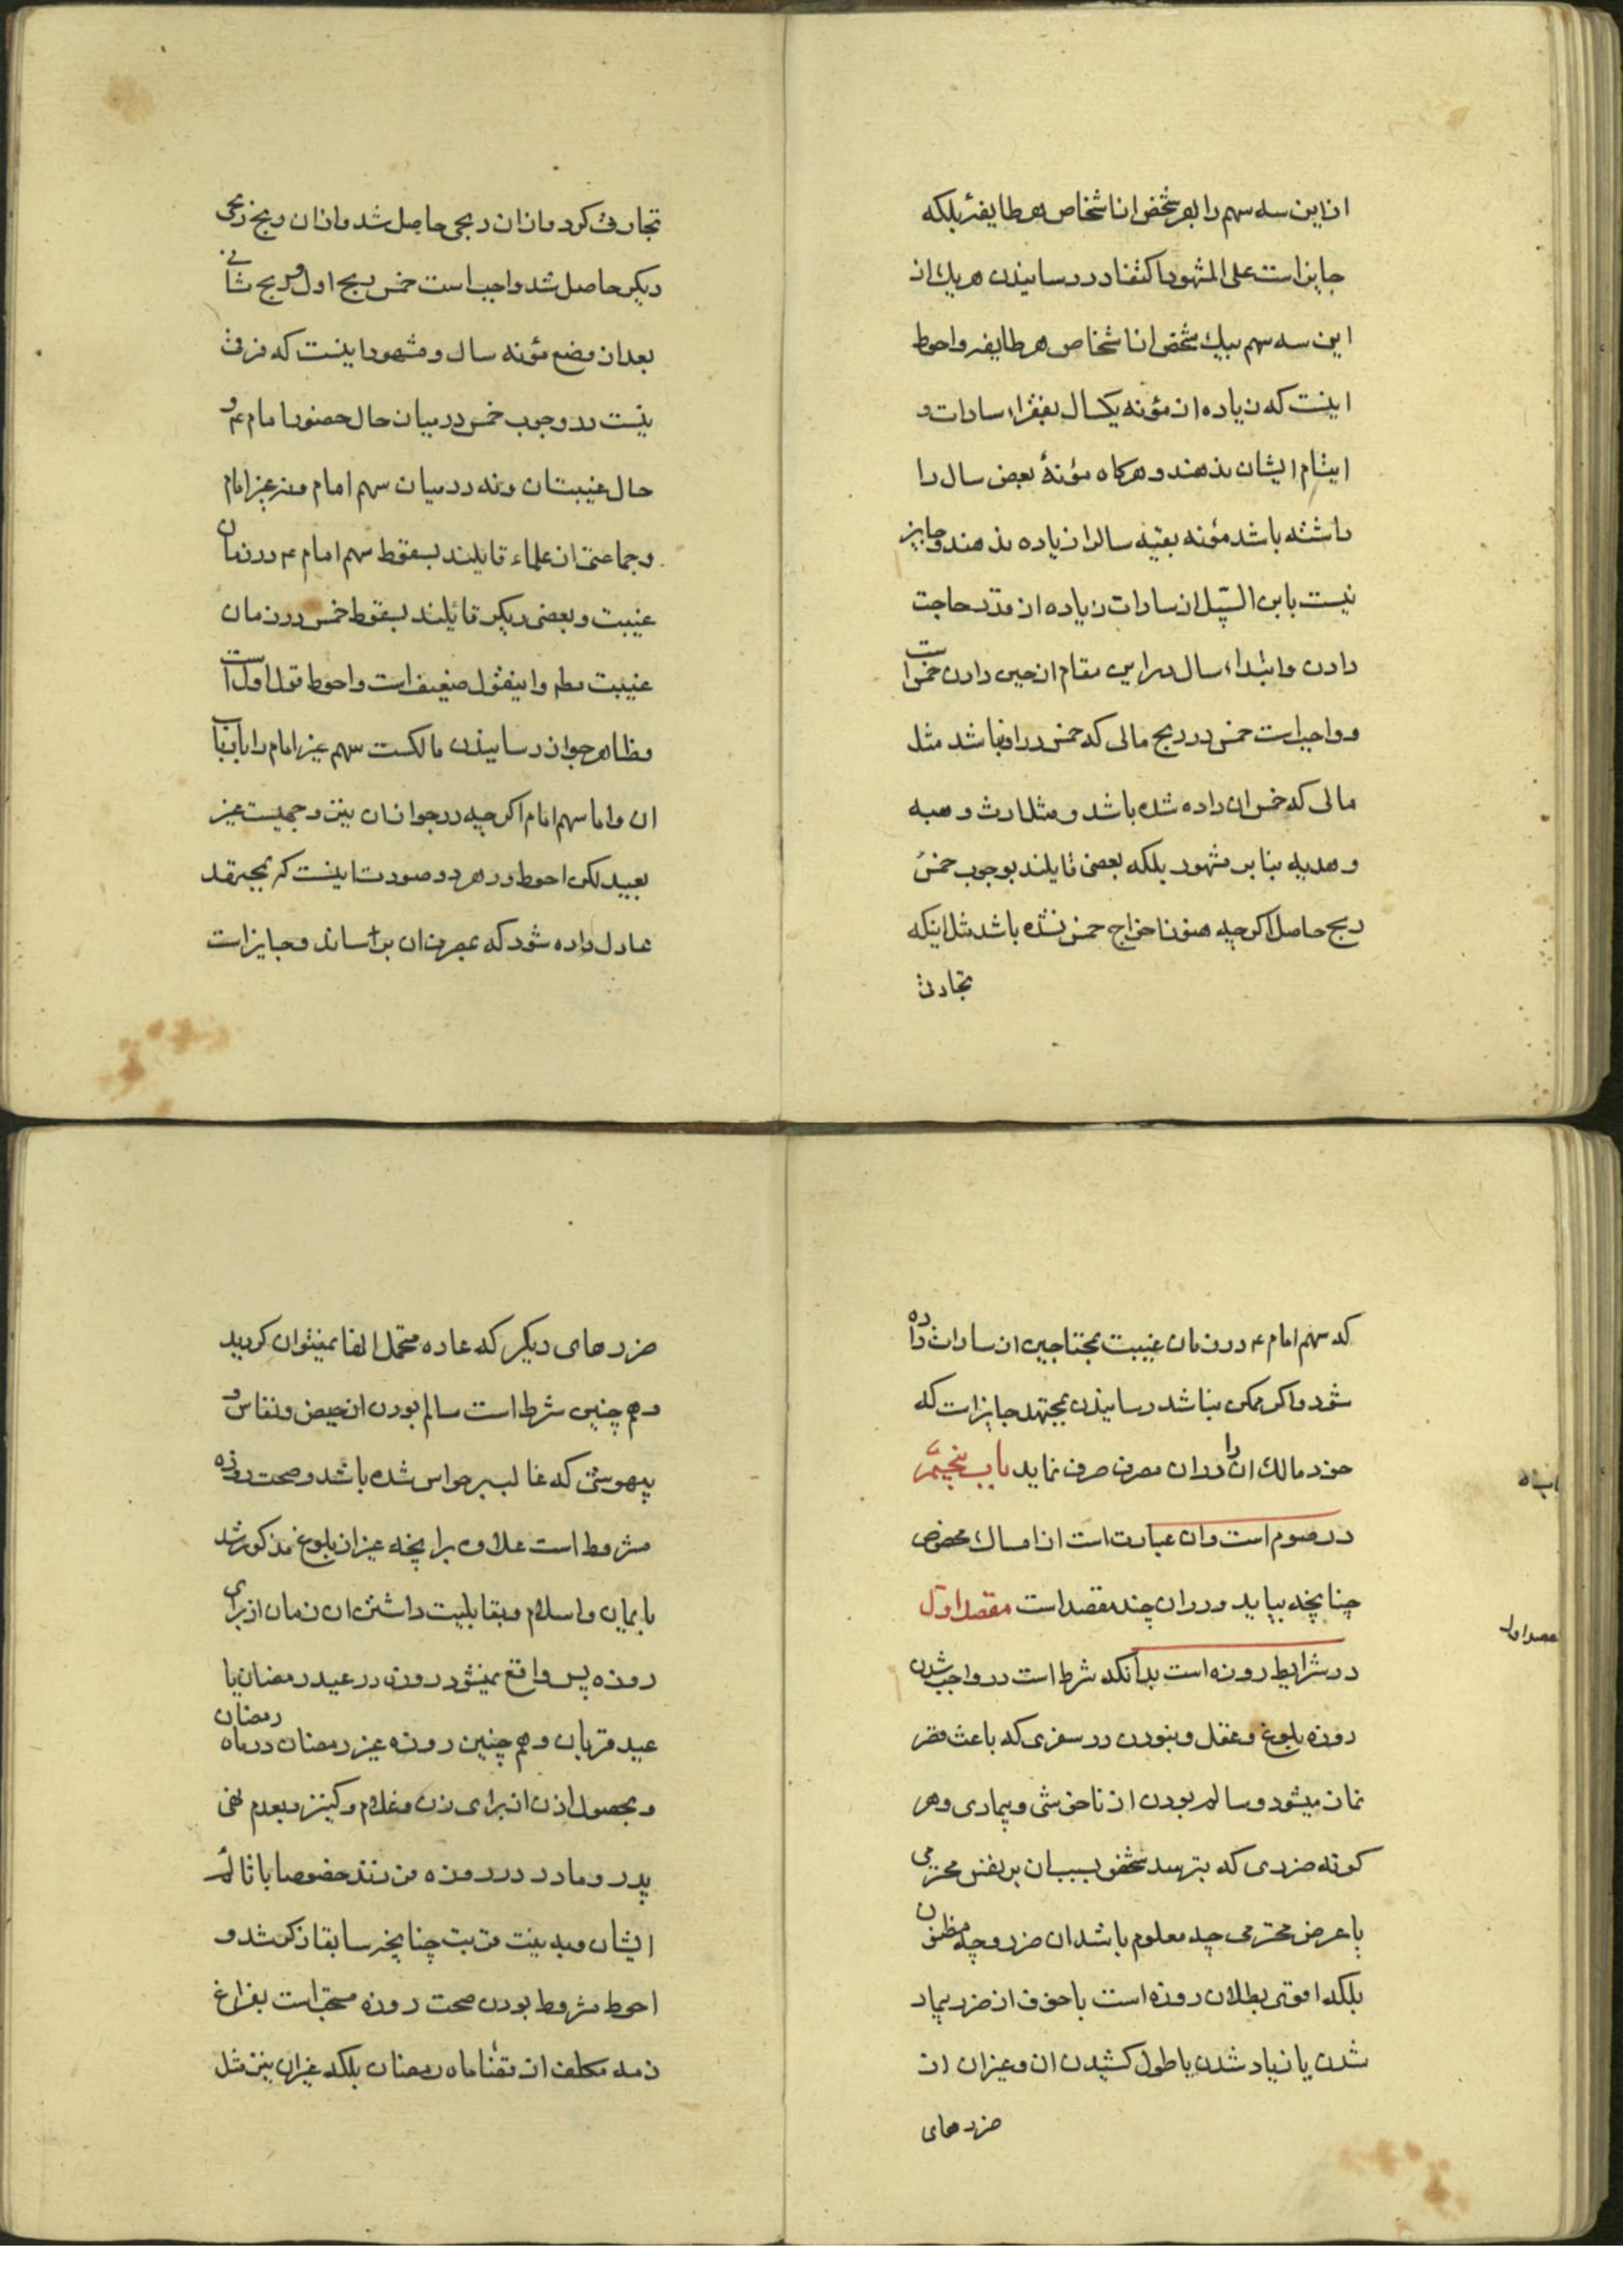 ازین سه سهم را بهر شخص از اشخاص هر طایفهٔ بلکه
جایز است علی المشهور اکتفا در رسانیدن هر یک از
این سه سهم بیک شخص از اشخاص هر طایفه و احوط
اینست که زیاده از مؤنه یکسال بفقراء سادات و
ایتام ایشان ندهند و هرکاه مؤنهٔ بعض سال را
داشته باشد مؤنه بقیّه سالرا زیاده ندهند و جایز
نیست بابن السّبیل از سادات زیاده از قدر حاجت
دادن و ابتداء سال در این مقام از حین دادن خمس است
و واجب است خمس در ربح مالی که خمس در او نباشد مثل
مالی که خمس ان داده شده باشد و مثل ارث و هبه
و هدیه بنا بر مشهور بلکه بعضی قایلند بوجوب خمس
ربح حاصل اکرچه هنوز اخراج خمس نشده باشد مثل اینکه
تجارت
تجارت کرد و از ان ربحی حاصل شد و از ان ربح ربحی
دیکر حاصل شد واجب است خمس ربح اول و ربح ثانی
بعد از وضع مؤنه سال و مشهور اینست که فرق
نیست در وجوب خمس در میان حال حضور امام ع و
حال غیبتشان و نه در میان سهم امام و غیر امام
و جماعتی از علماء قایلند بسقوط سهم امام ع در زمان
غیبت و بعضی دیکر قائلند بسقوط خمس در زمان
غیبت مطم و اینقول ضعیف است و احوط قول اول است
و ظاهر جواز رسانیدن مالکست سهم غیر امام را باربابان
ان و اما سهم امام اکرچه در جواز ان نیز وجهیست غیر
بعید لکن احوط در هر دو صورت اینست که بمجتهد
عادل داده شود که بمصرف ان برساند و جایز است
که سهم امام ع در زمان غیبت بمحتاجین از سادات داده
شود و اکر ممکن نباشد رسانیدن بمجتهد جایز است که
خود مالک ان را در ان مصرف صرف نماید باب پنجم
در صوم است و ان عبارت است از امساک مخصوص
چنانچه بیاید و در ان چند مقصد است مقصد اول
در شرایط روزه است بدانکه شرط است در واجب شدن
روزه بلوغ و عقل و نبودن در سفری که باعث قصر
نماز میشود و سالم بودن از ناخوشی و بیماری و هر
کونه ضرری که بترسد شخص بسبب ان بر نفس محترمی
یا عرض محترمی چه معلوم باشد ان ضرر و چه مظنون
بلکه اقوی بطلان روزه است با خوف از ضرر بیمار
شدن یا زیاد شدن یا طول کشیدن ان و غیر ان از
ضررهای
مقصد اول
ضررهای دیکر که عادة متحمل انها نمیتوان کردید
و هم چنین شرط است سالم بودن از حیض و نفاس و
بیهوشی که غالب بر حواس شده باشد و صحت روزه
مشروط است علاوه بر انچه غیر از بلوغ مذکور شد
بایمان و اسلام و بقابلیت داشتن ان زمان از برای
روزه پس واقع نمیشود روزه در عید رمضان یا
عید قربان و هم چنین روزه غیر رمضان در ماه رمضان
و بحصول اذن از برای زن و غلام و کنیز و بعدم نهی
پدر و مادر در روزه فرزند خصوصا با تالّم
ایشان و به نیت قربت چنانچه سابقا ذکر شد و
احوط مشروط بودن صحت روزه مستحب است بفراغ
ذمه مکلف از قضاء ماه رمضان بلکه غیر ان نیز مثل